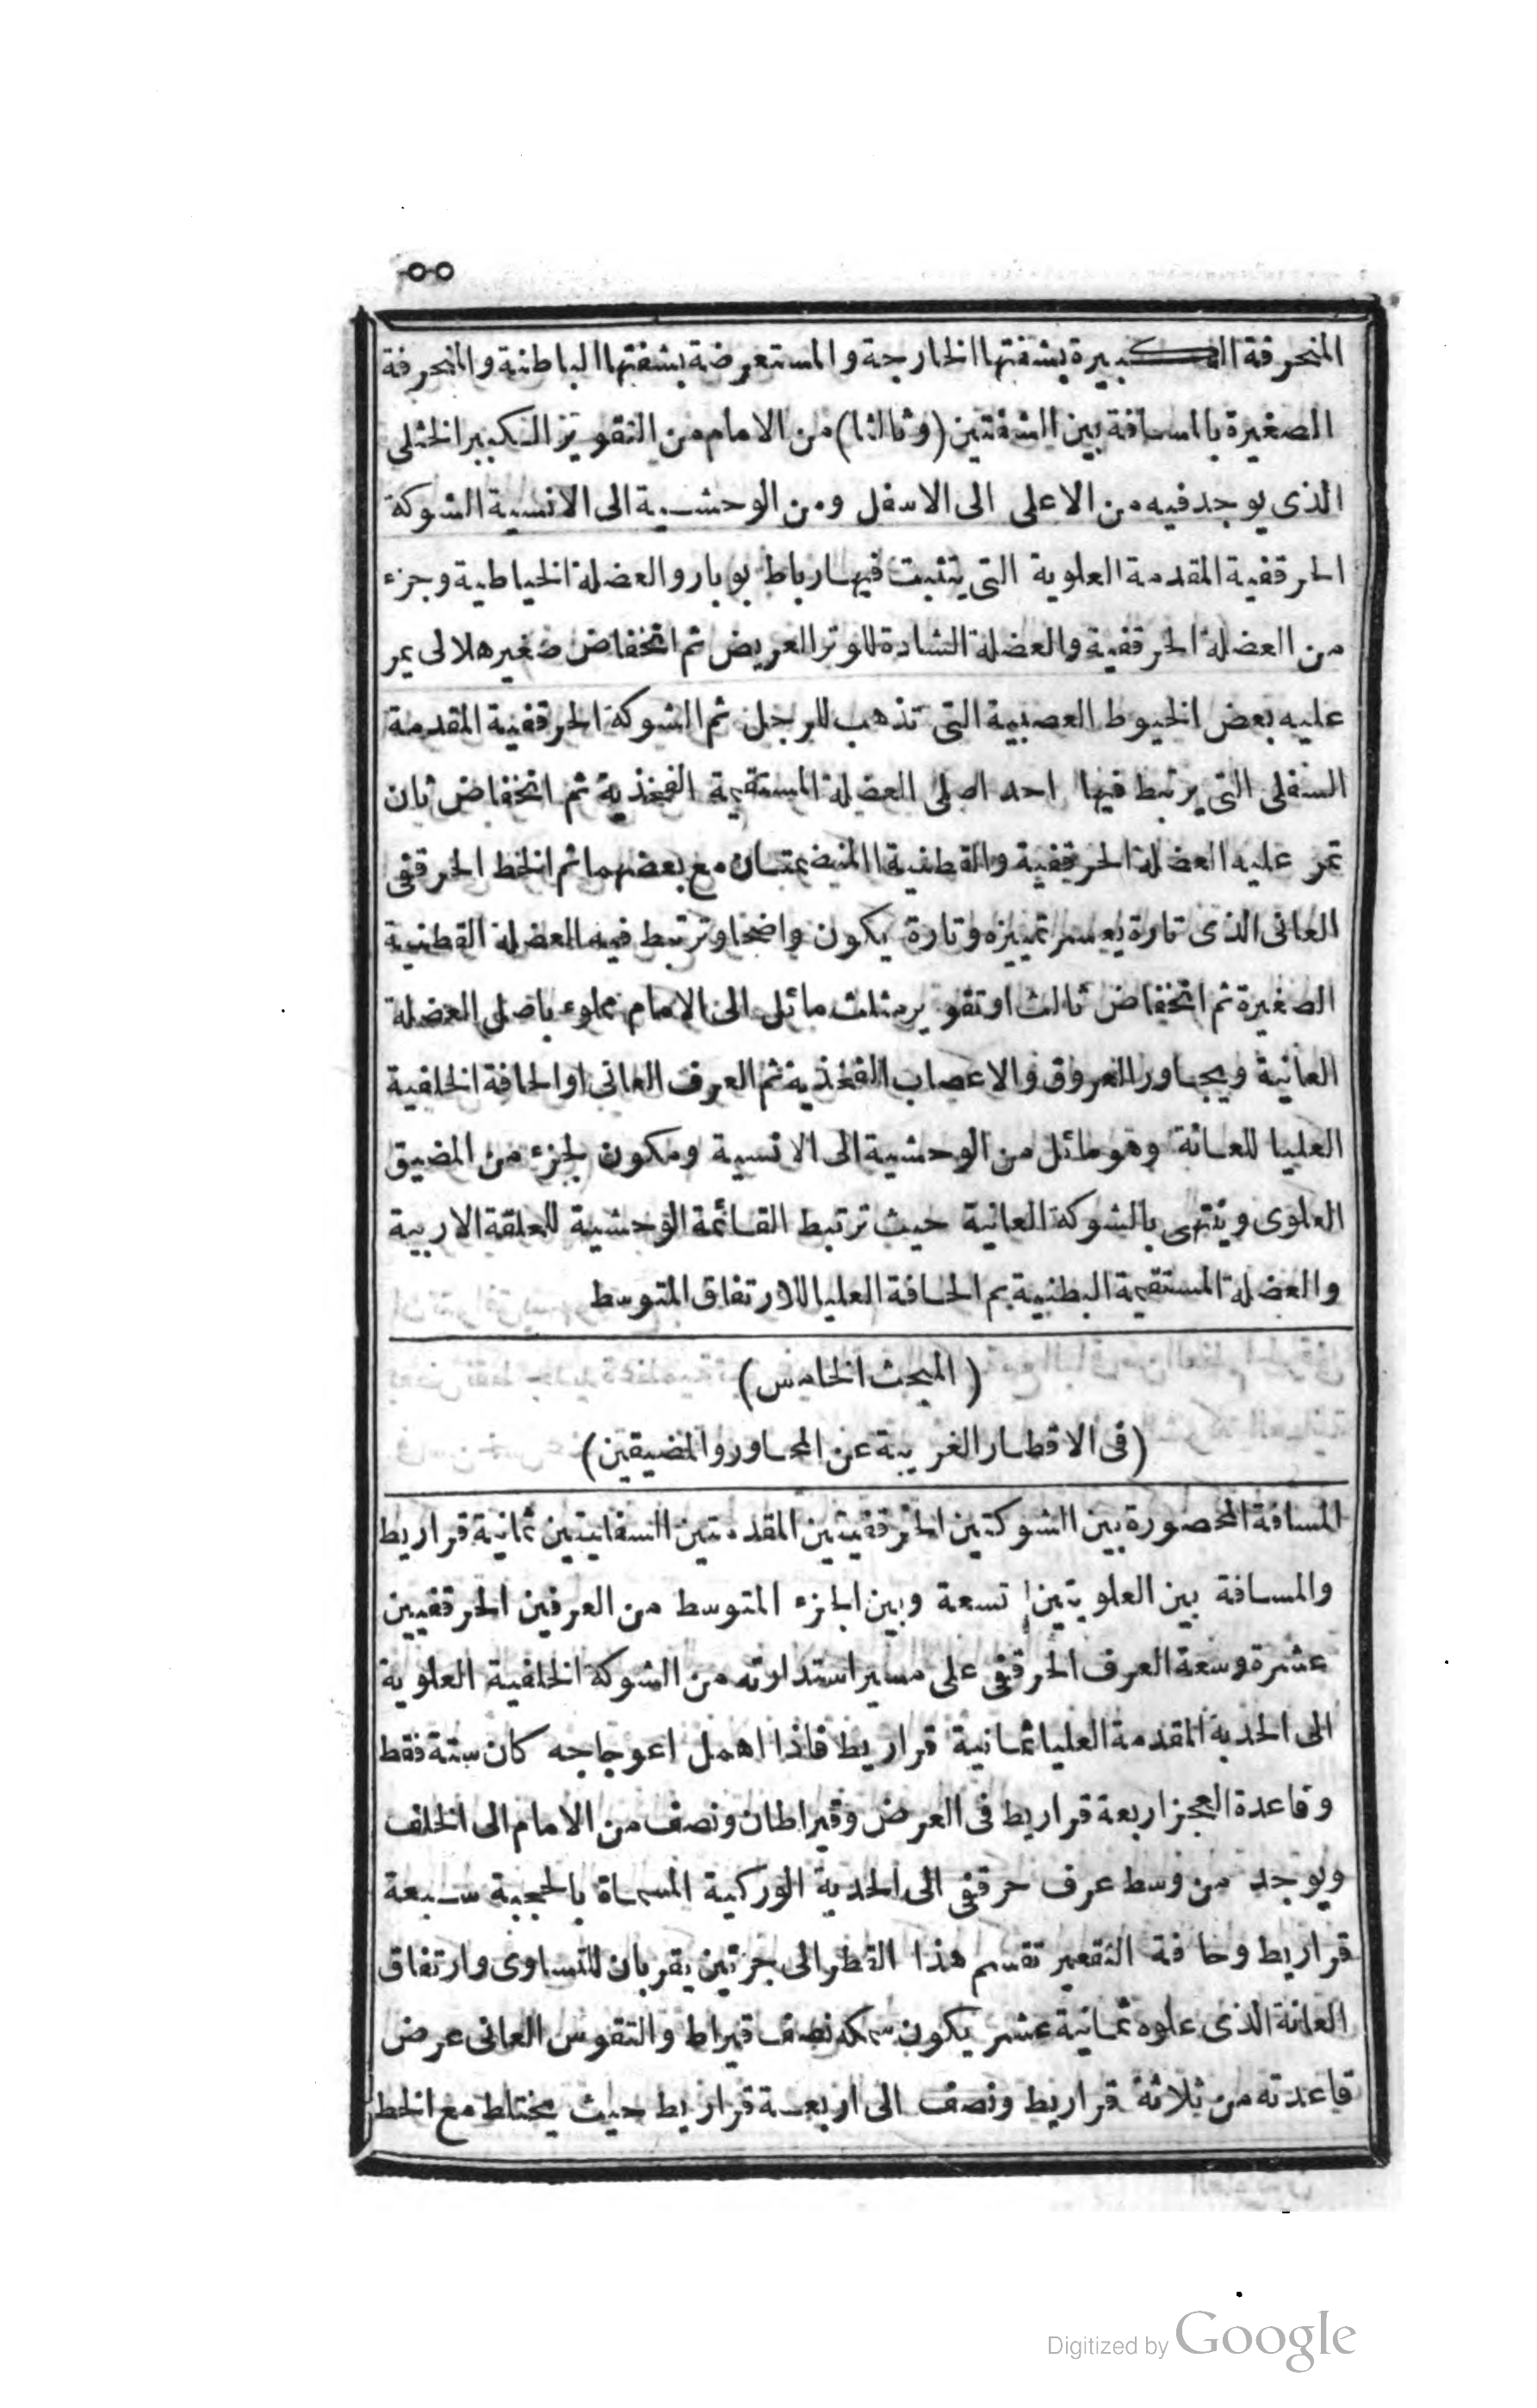 ٥٥
المنحرفة الكبيرة بشفتها الخارجة والمستعرضة بشفتها الباطنة والمنحرفة
الصغيرة بالمسافة بين الشفتين (وثالثا) من الامام من التقوير الكبير الخثلى
الذى يوجد فيه من الاعلى الى الاسفل ومن الوحشية الى الانسية الشوكة
الحرقفية المقدمة العلوية التى يتثبت فيها رباط بوبار والعضلة الخياطية وجزء
من العضلة الحرقفية والعضلة الشادة للوتر العريض ثم انخفاض صغير هلالى يمر
عليه بعض الخيوط العصبية التى تذهب للرجل ثم الشوكة الحرقفية المقدمة
السفلى التى يرتبط فيها احد اصلى العضلة المستقيمة الفخذية ثم انخفاض ثان
تمر عليه العضلة الحرقفية والقطنية المنضمتان مع بعضهما ثم الخط الحرقفى
العانى الذى تارة يعسر تمييزه وتارة يكون واضحا وترتبط فيه العضلة القطنية
الصغيرة ثم انخفاض ثالث او تقوير مثلث مائل الى الامام مملوء باصلى العضلة
العانية ويجاور العروق والاعصاب الفخذية ثم العرف العانى او الحافة الخلفية
العليا للعانة وهو مائل من الوحشية الى الانسية ومكون لجزء من المضيق
العلوى وينتهى بالشوكة العانية حيث ترتبط القائمة الوحشية للعلقة الاربية
والعضلة المستقيمة البطنية ثم الحافة العليا للارتفاق المتوسط
(المبحث الخامس)
(فى الاقطار الغريبة عن المحاور والمضيقين)
المسافة المحصورة بين الشوكتين الحرقفيتين المقدمتين السفليتين ثمانية قراريط
والمسافة بين العلويتين تسعة وبين الجزء المتوسط من العرفين الحرقفيين
عشرة وسعة العرف الحرقفى على مسير استدارته من الشوكة الخلفية العلوية
الى الحدبة المقدمة العليا ثمانية قراريط فاذا اهمل اعوجاجه كان ستة فقط
وقاعدة العجز اربعة قراريط فى العرض وقيراطان ونصف من الامام الى الخلف
ويوجد من وسط عرف حرقفى الى الحدبة الوركية المسماة بالحجبة سبعة
قراريط وحافة التقعير تقسم هذا القطر الى جزئين يقربان للتساوى وارتفاق
العانة الذى علوه ثمانية عشر يكون سمكه نصف قيراط والتقوس العانى عرض
قاعدته من ثلاثة قراريط ونصف الى اربعة قراريط حيث يختلط مع الخط
Digitized by Google